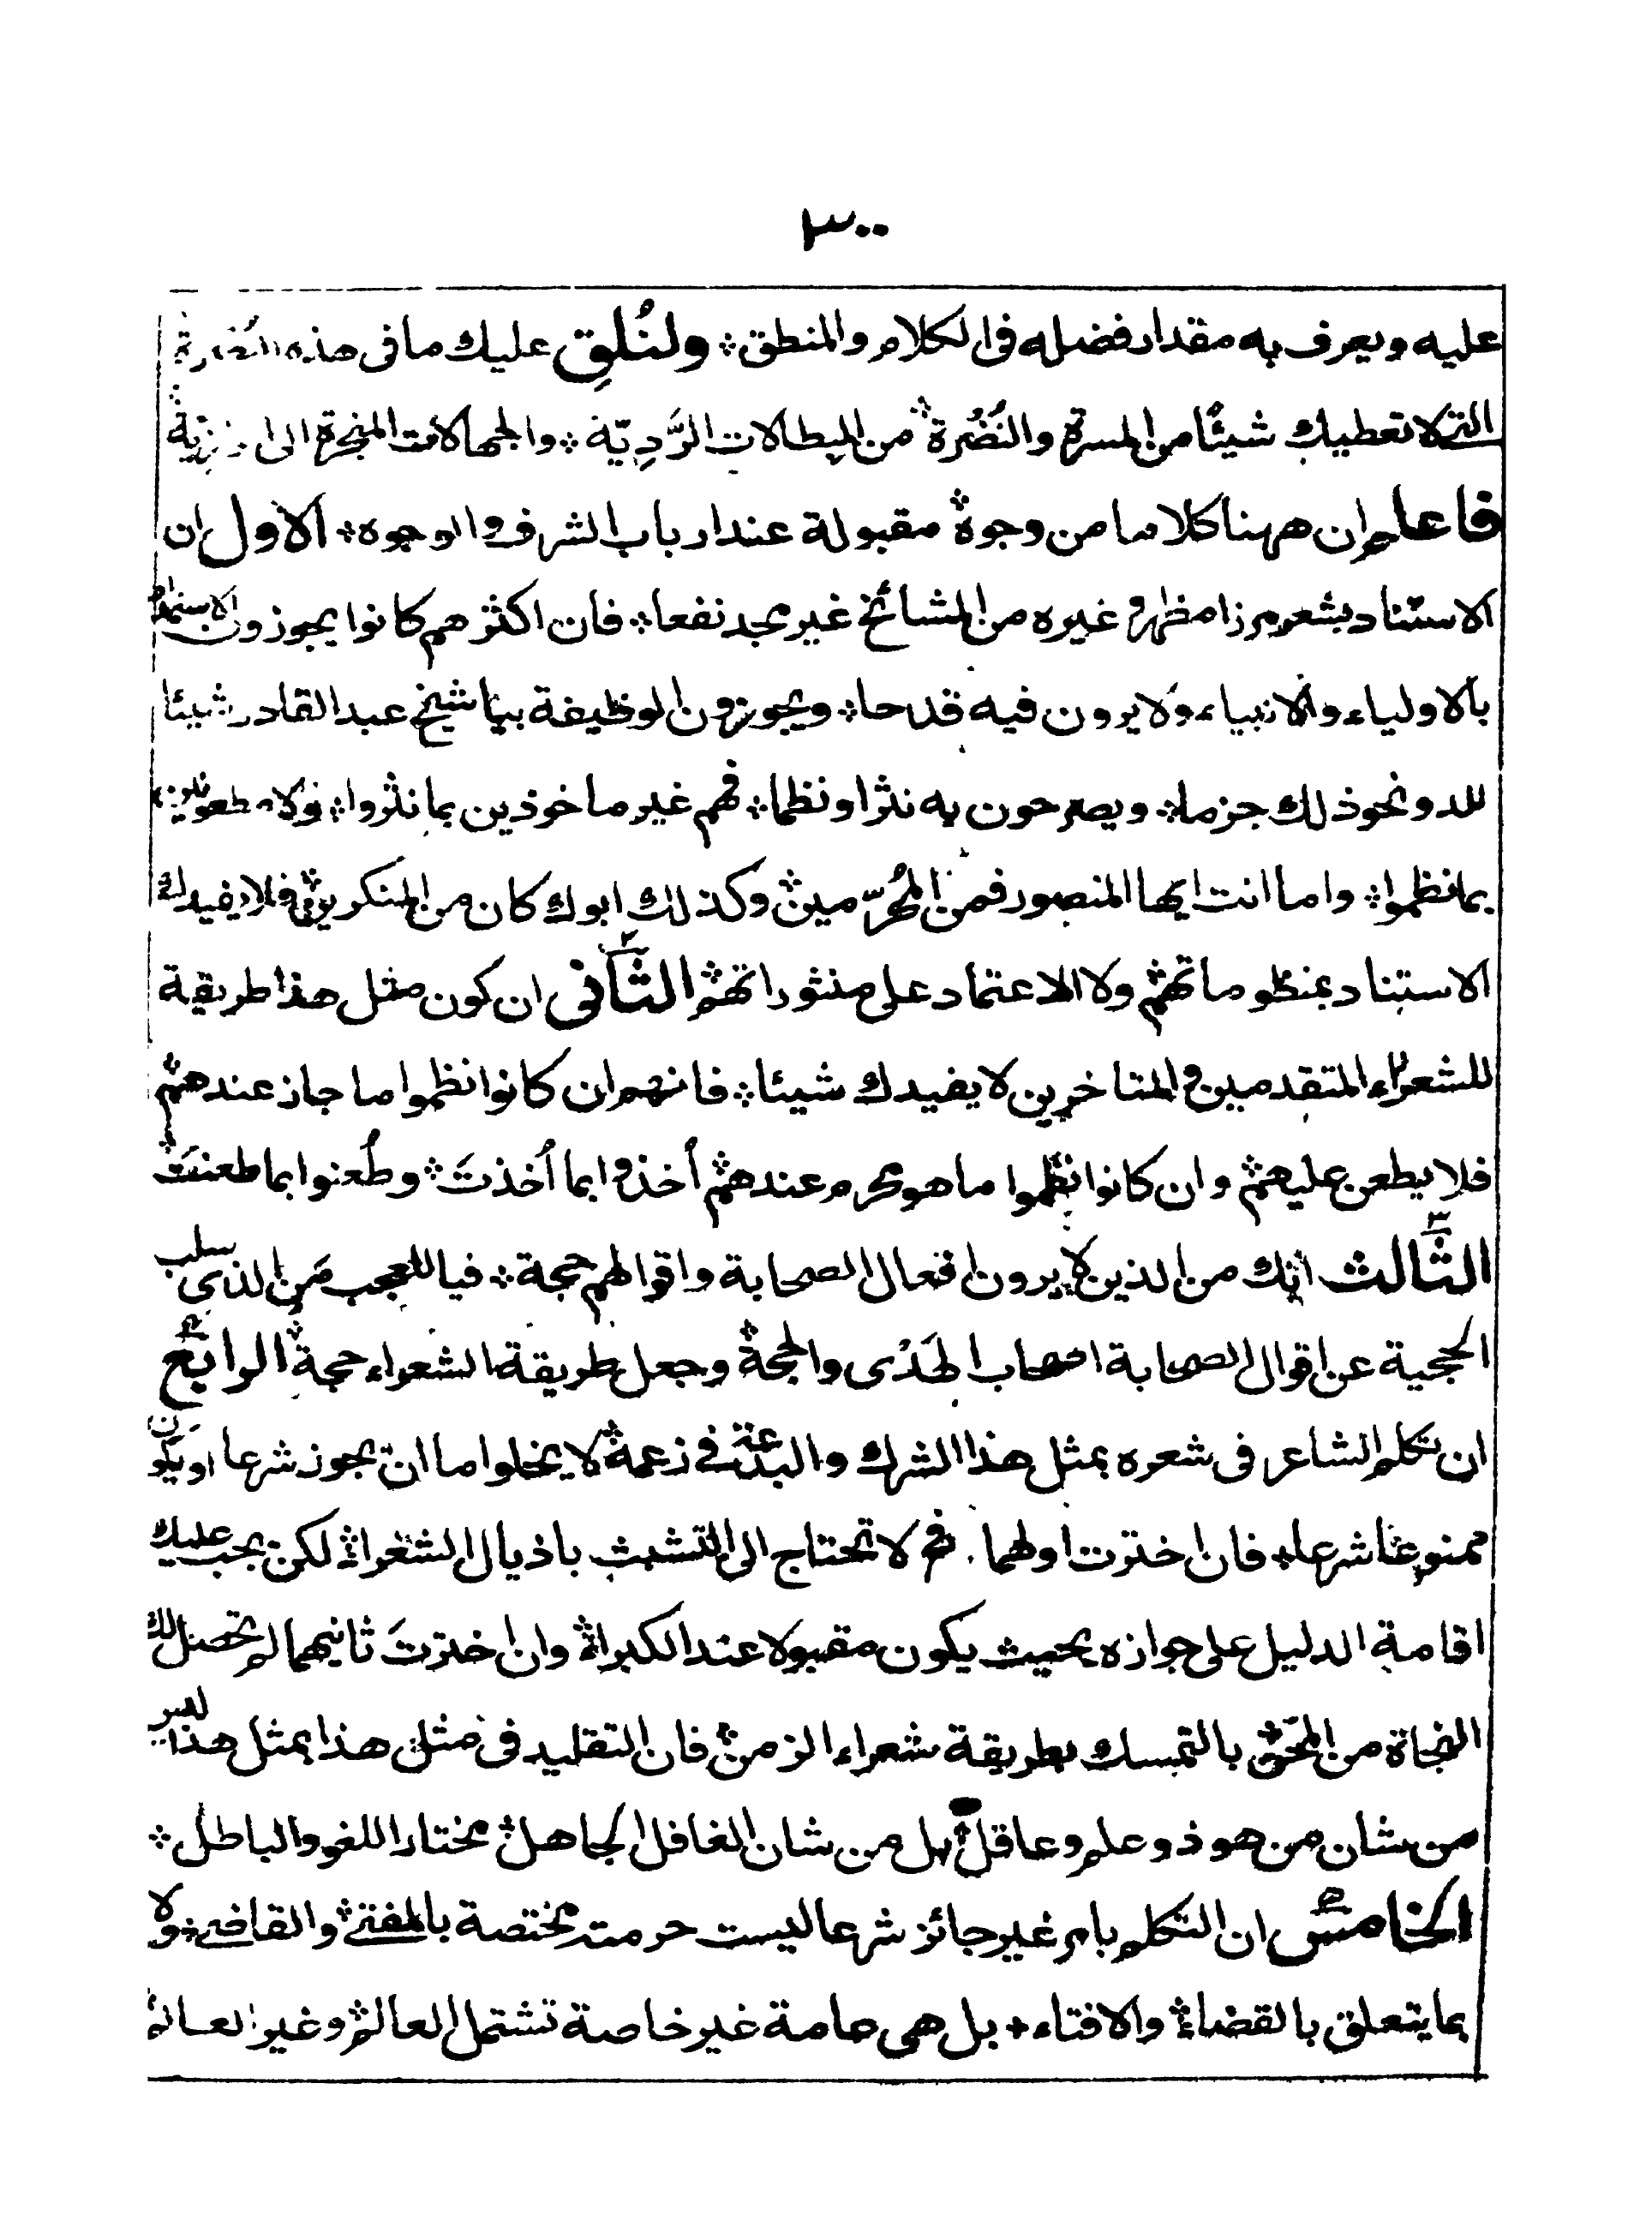 ٣٠٠
عليه ويعرف به مقدار فضله فى الكلام والمنطق ؞ ولنُلقِ عليك ما فى هذه
التى لا تعطيك شيئًا من المسرة والنُضُرة ؞ من البطالات الرَّدِيّة ؞ والجهالات المنجرة الى
فاعلم ان ههنا كلاما من وجوه ؞ مقبولة عند ارباب الشرف والوجوه ؞ الاول ان
الاستناد بشعر مرزا مظهر و غيره من المشائخ غير مجد نفعا ؞ فان اكثرهم كانوا يجوزون الاستمداد
بالاولياء والانبياء ولا يرون فيه قدحا ؞ ويجوزون الوظيفة بيا شيخ عبد القادر شيئا
لله ونحو ذلك جزما ؞ ويصرحون به نثرا ونظما ؞ فهم غير ماخوذين بما نثروا ؞ ولا مطعونين
بما نظموا ؞ واما انت ايها المنصور فمن المُحرّمين ؞ وكذلك ابوك كان من المنكرين ؞ فلا يفيدك
الاستناد بمنظوماتهم ؞ ولا الاعتماد على منثوراتهم ؞ الثَّانى ان كون مثل هذا طريقة
للشعراء المتقدمين و المتاخرين لا يفيدك شيئا ؞ فانهم ان كانوا نظموا ما جاز عندهم ؞
فلا يطعن عليهم ؞ وان كانوا نظموا ما هو محرم عندهم ؞ اُخذوا بما اُخذتَ ؞ وطُعنوا بما طعنتَ ؞
الثَّالث انك من الذين لا يرون افعال الصحابة واقوالهم حجة ؞ فيا للعجب مَن الذى سلب
الحجية عن اقوال الصحابة اصحاب الهَدْى والحجة ؞ وجعل طريقة الشعراء حجة ؞ الرابع
ان تكلم الشاعر فى شعره بمثل هذا الشرك والبدعة فى زعمه ؞ لا يخلو اما ان يجوز شرعا او يكون
ممنوعا شرعا ؞ فان اخترت اولهما فح لا تحتاج الى التشبث باذيال الشعراء ؞ لكن يجب عليك
اقامة الدليل على جوازه بحيث يكون مقبولا عند الكبراء ؞ وان اخترتَ ثانيهما لم تحصل لك
النجاة من المحن ؞ بالتمسك بطريقة شعراء الزمن ؞ فان التقليد فى مثل هذا بمثل هذا ليس
من شان من هو ذو علم و عاقل ؞ بل من شان الغافل الجاهل ؞ مختار اللغو والباطل ؞
الخامس ان التكلم بامر غير جائز شرعا ليست حرمته مختصة بالمفتى ؞ والقاضى ؞ ولا
بما يتعلق بالقضاء ؞ والافتاء ؞ بل هى عامة غير خاصة تشتمل العالم ؞ وغير العالم